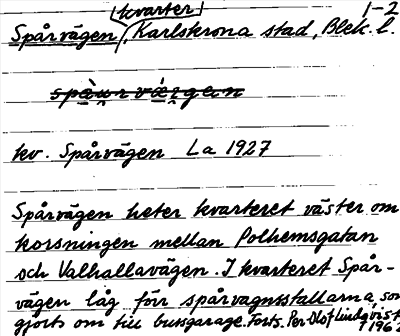 kvarter 1-2
Spårvägen, Karlskrona stad, Blek. l.
spà̱u̱rvæ̱gan
kv. Spårvägen La 1927
Spårvägen heter kvarteret väster om
korsningen mellan Polhemsgatan
och Valhallavägen. I kvarteret Spår-
vägen låg förr spårvagnsstallarna, som
gjorts om till bussgarage. Forts. Per Olof Lindqvist
1962